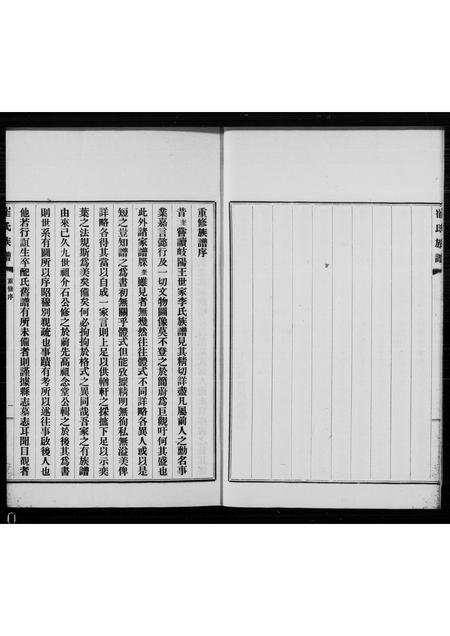 崔氏族譜
重修族譜序
昔奎嘗讀岐陽王世家李氏族譜見其精切詳盡凡屬前人之勳名事
業嘉言懿行及一切文物圖像莫不登之於簡蔚爲巨觀吁何其盛也
此外諸家譜牒奎雖見者無幾然往往體式不同詳略各異人或以是
短之豈知譜之爲書初無關乎體式但能攷據精明無徇私無溢美俾
詳略各得其當以自成一家言則上足以供輶軒之採摭下足以示奕
葉之法規斯爲美矣備矣何必拘拘於格式之異同哉吾家之有族譜
由來已久九世祖介石公修之於前先高祖念堂公輯之於後其爲書
則世系有圖所以序昭穆別親疏也事蹟有考所以述往事啟後人也
他若行誼生卒配氏舊譜有所未備者則謹據縣志墓志耳聞目覩者
崔氏族譜
重修序
一